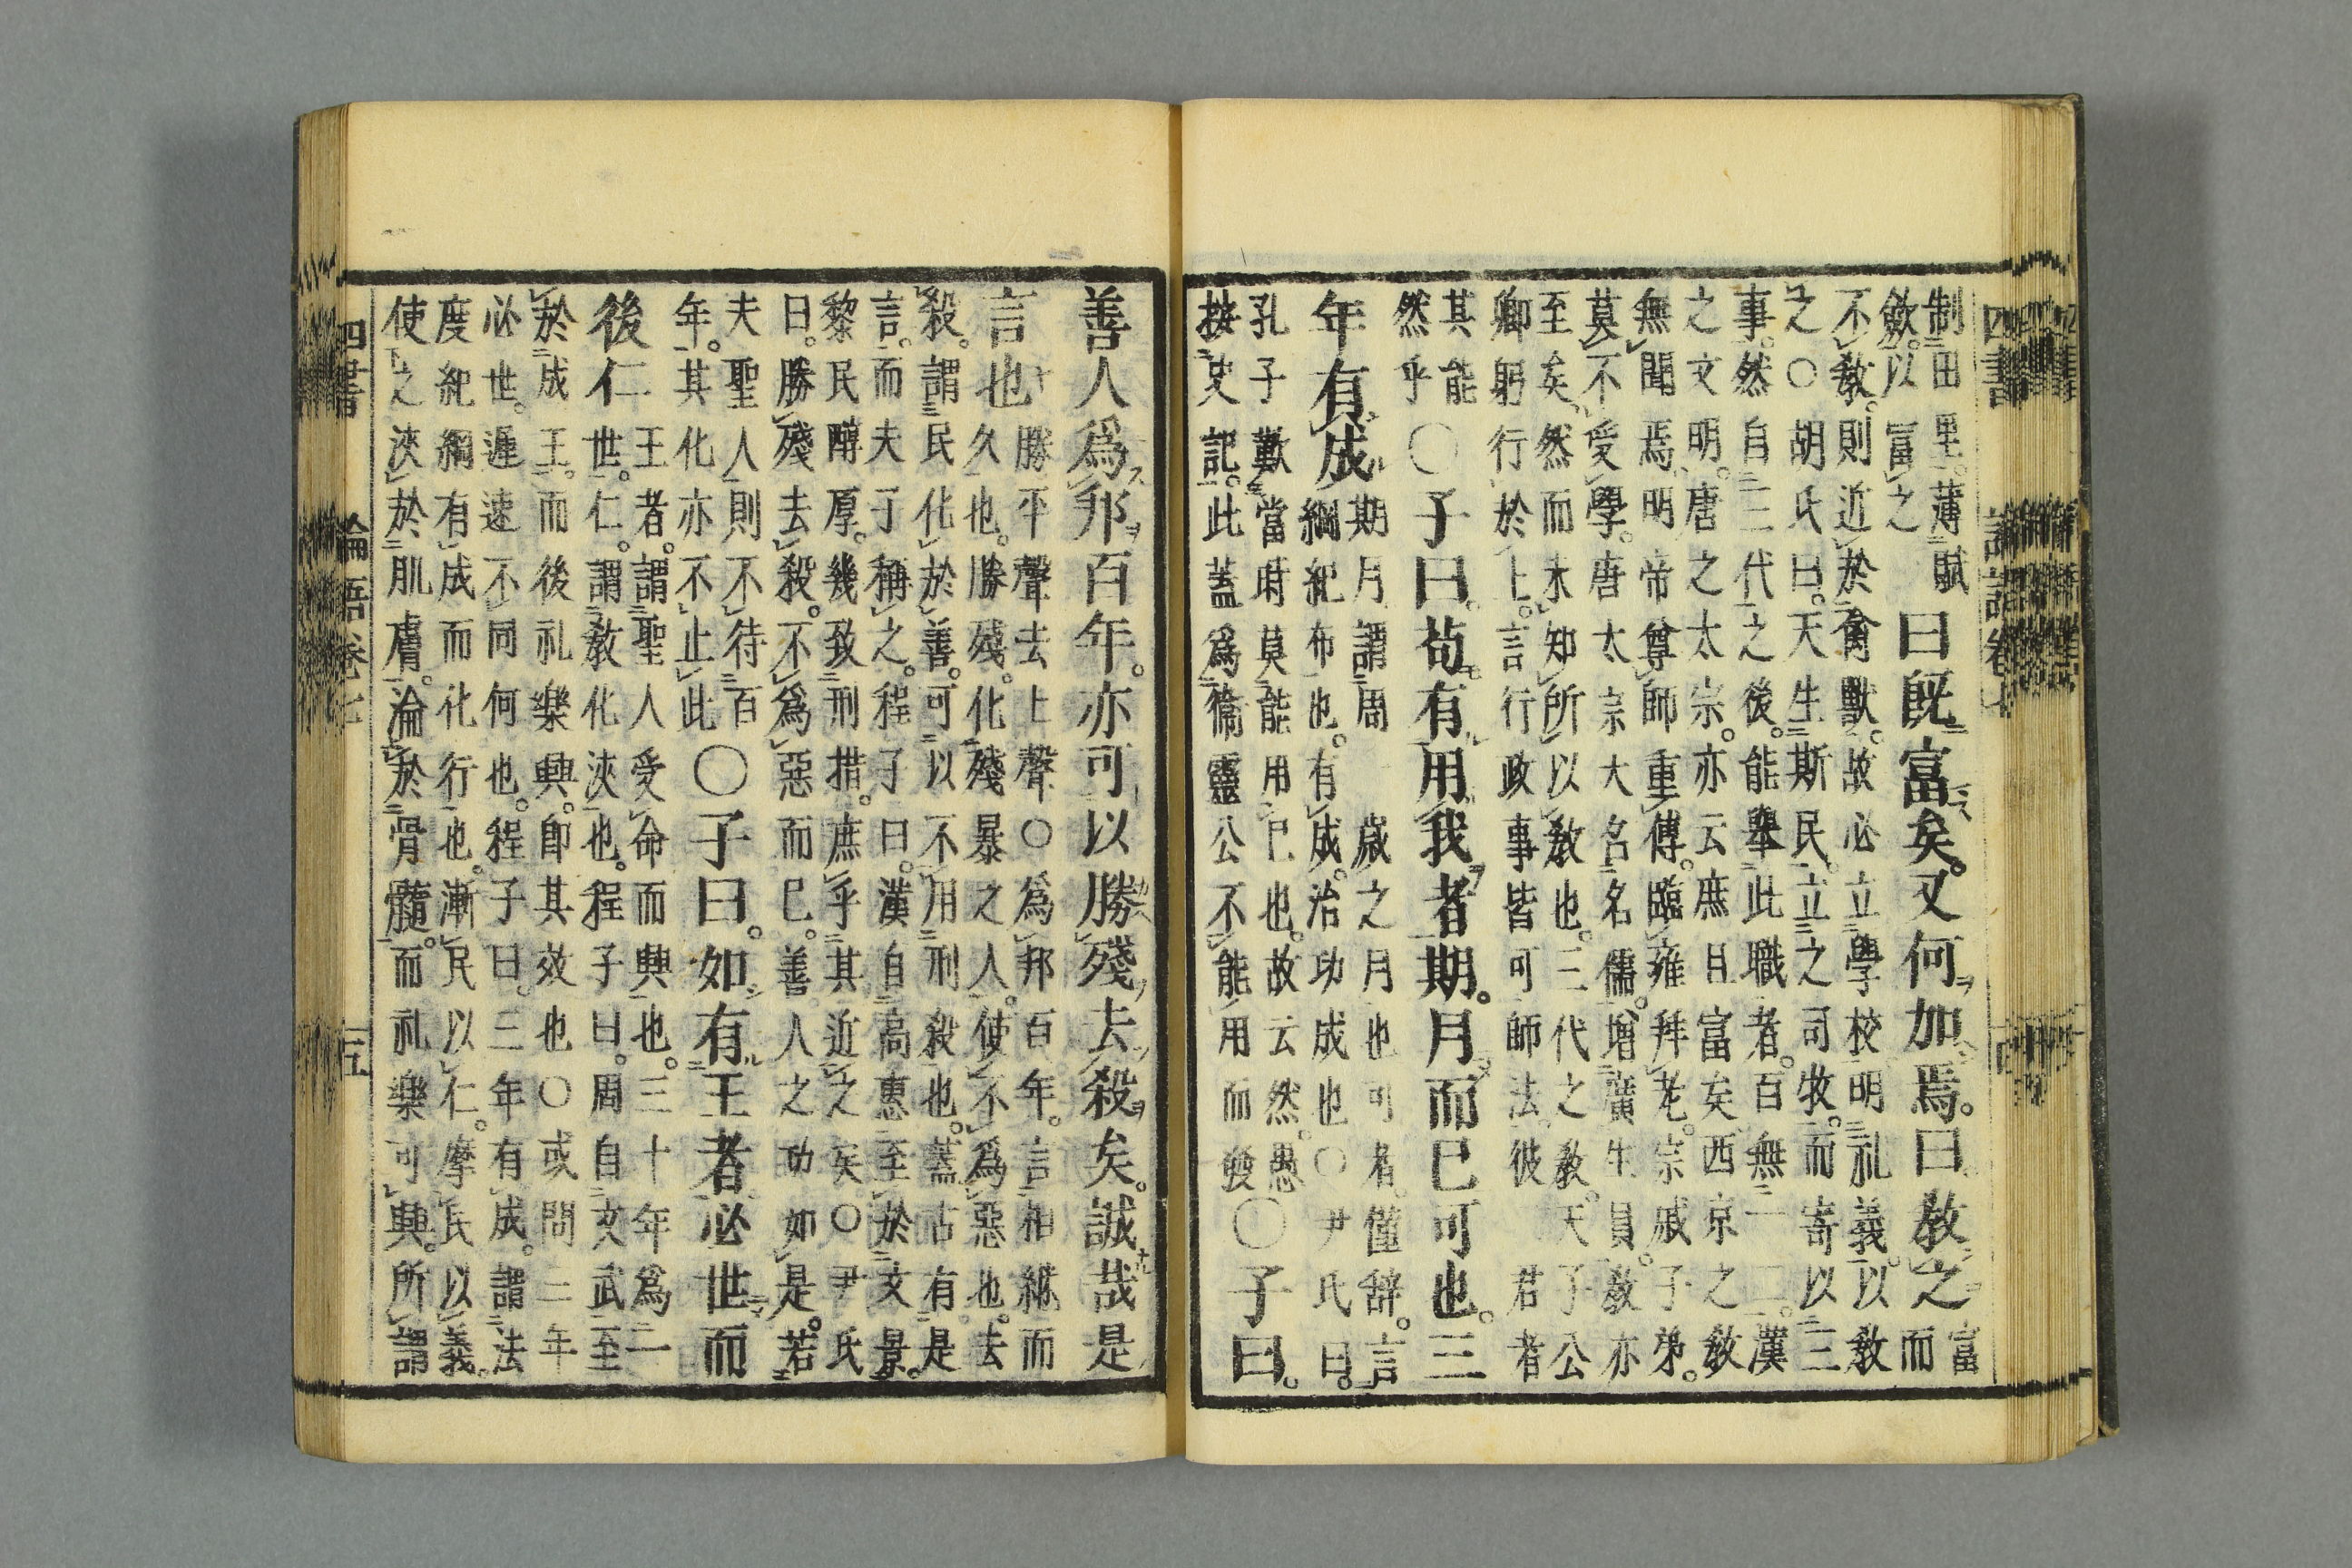 四書 論語卷七 十四
制田里。薄賦
斂。以富之
曰既富矣。又何加焉。曰教之
富
而
不教。則近於禽獸。故必立學校。明礼義。以教
之○胡氏曰。天生斯民。立之司牧。而寄以三
事。然自三代之後。能舉此職者。百無一二。漢
之文明。唐之太宗。亦云庶且富矣西京之教
無聞焉。明帝尊師重傅。臨雍拜老。宗戚子弟。
莫不受學。唐太宗大名名儒。增廣生員。教亦
至矣。然而未知所以教也。三代之教。天子公
卿躬行於上。言行政事皆可師法。彼 君者
其能
然乎
○子曰。苟有用我者期。月而已可也。三
年有成
期月謂周 歲之月也可者。僅辞。言
綱紀布也。有成。治功成也○尹氏曰。
孔子歎當時莫能用已也。故云然。愚
按史記。此蓋為衛靈公不能用而發
○子曰。
善人爲邦百年。亦可以勝殘去殺矣。誠哉是
言也
勝平聲去上聲○爲邦百年。言相繼而
久也。勝殘。化殘暴之人。使不爲惡也。去
殺。謂民化於善。可以不用刑殺也。蓋古有是
言。而夫子稱之。程子曰。漢自高惠至於文景。
黎民醇厚。幾致刑措。庶乎其近之矣○尹氏
曰。勝殘去殺。不爲惡而已。善人之功如是。若
夫聖人則不待百
年。其化亦不止此
○子曰。如有王者必世而
後仁
王者。謂聖人受命而興也。三十年爲一
世。仁。謂教化浹也。程子曰。周自文武至
於成王。而後礼樂興。即其效也○或問三年
必世。遲速不同何也。程子曰。三年有成。謂法
度紀綱有成而化行也。漸民以仁。摩民以義。
使之浹於肌膚。淪於骨髓。而礼樂可興。所謂
四書 論語卷七 十五